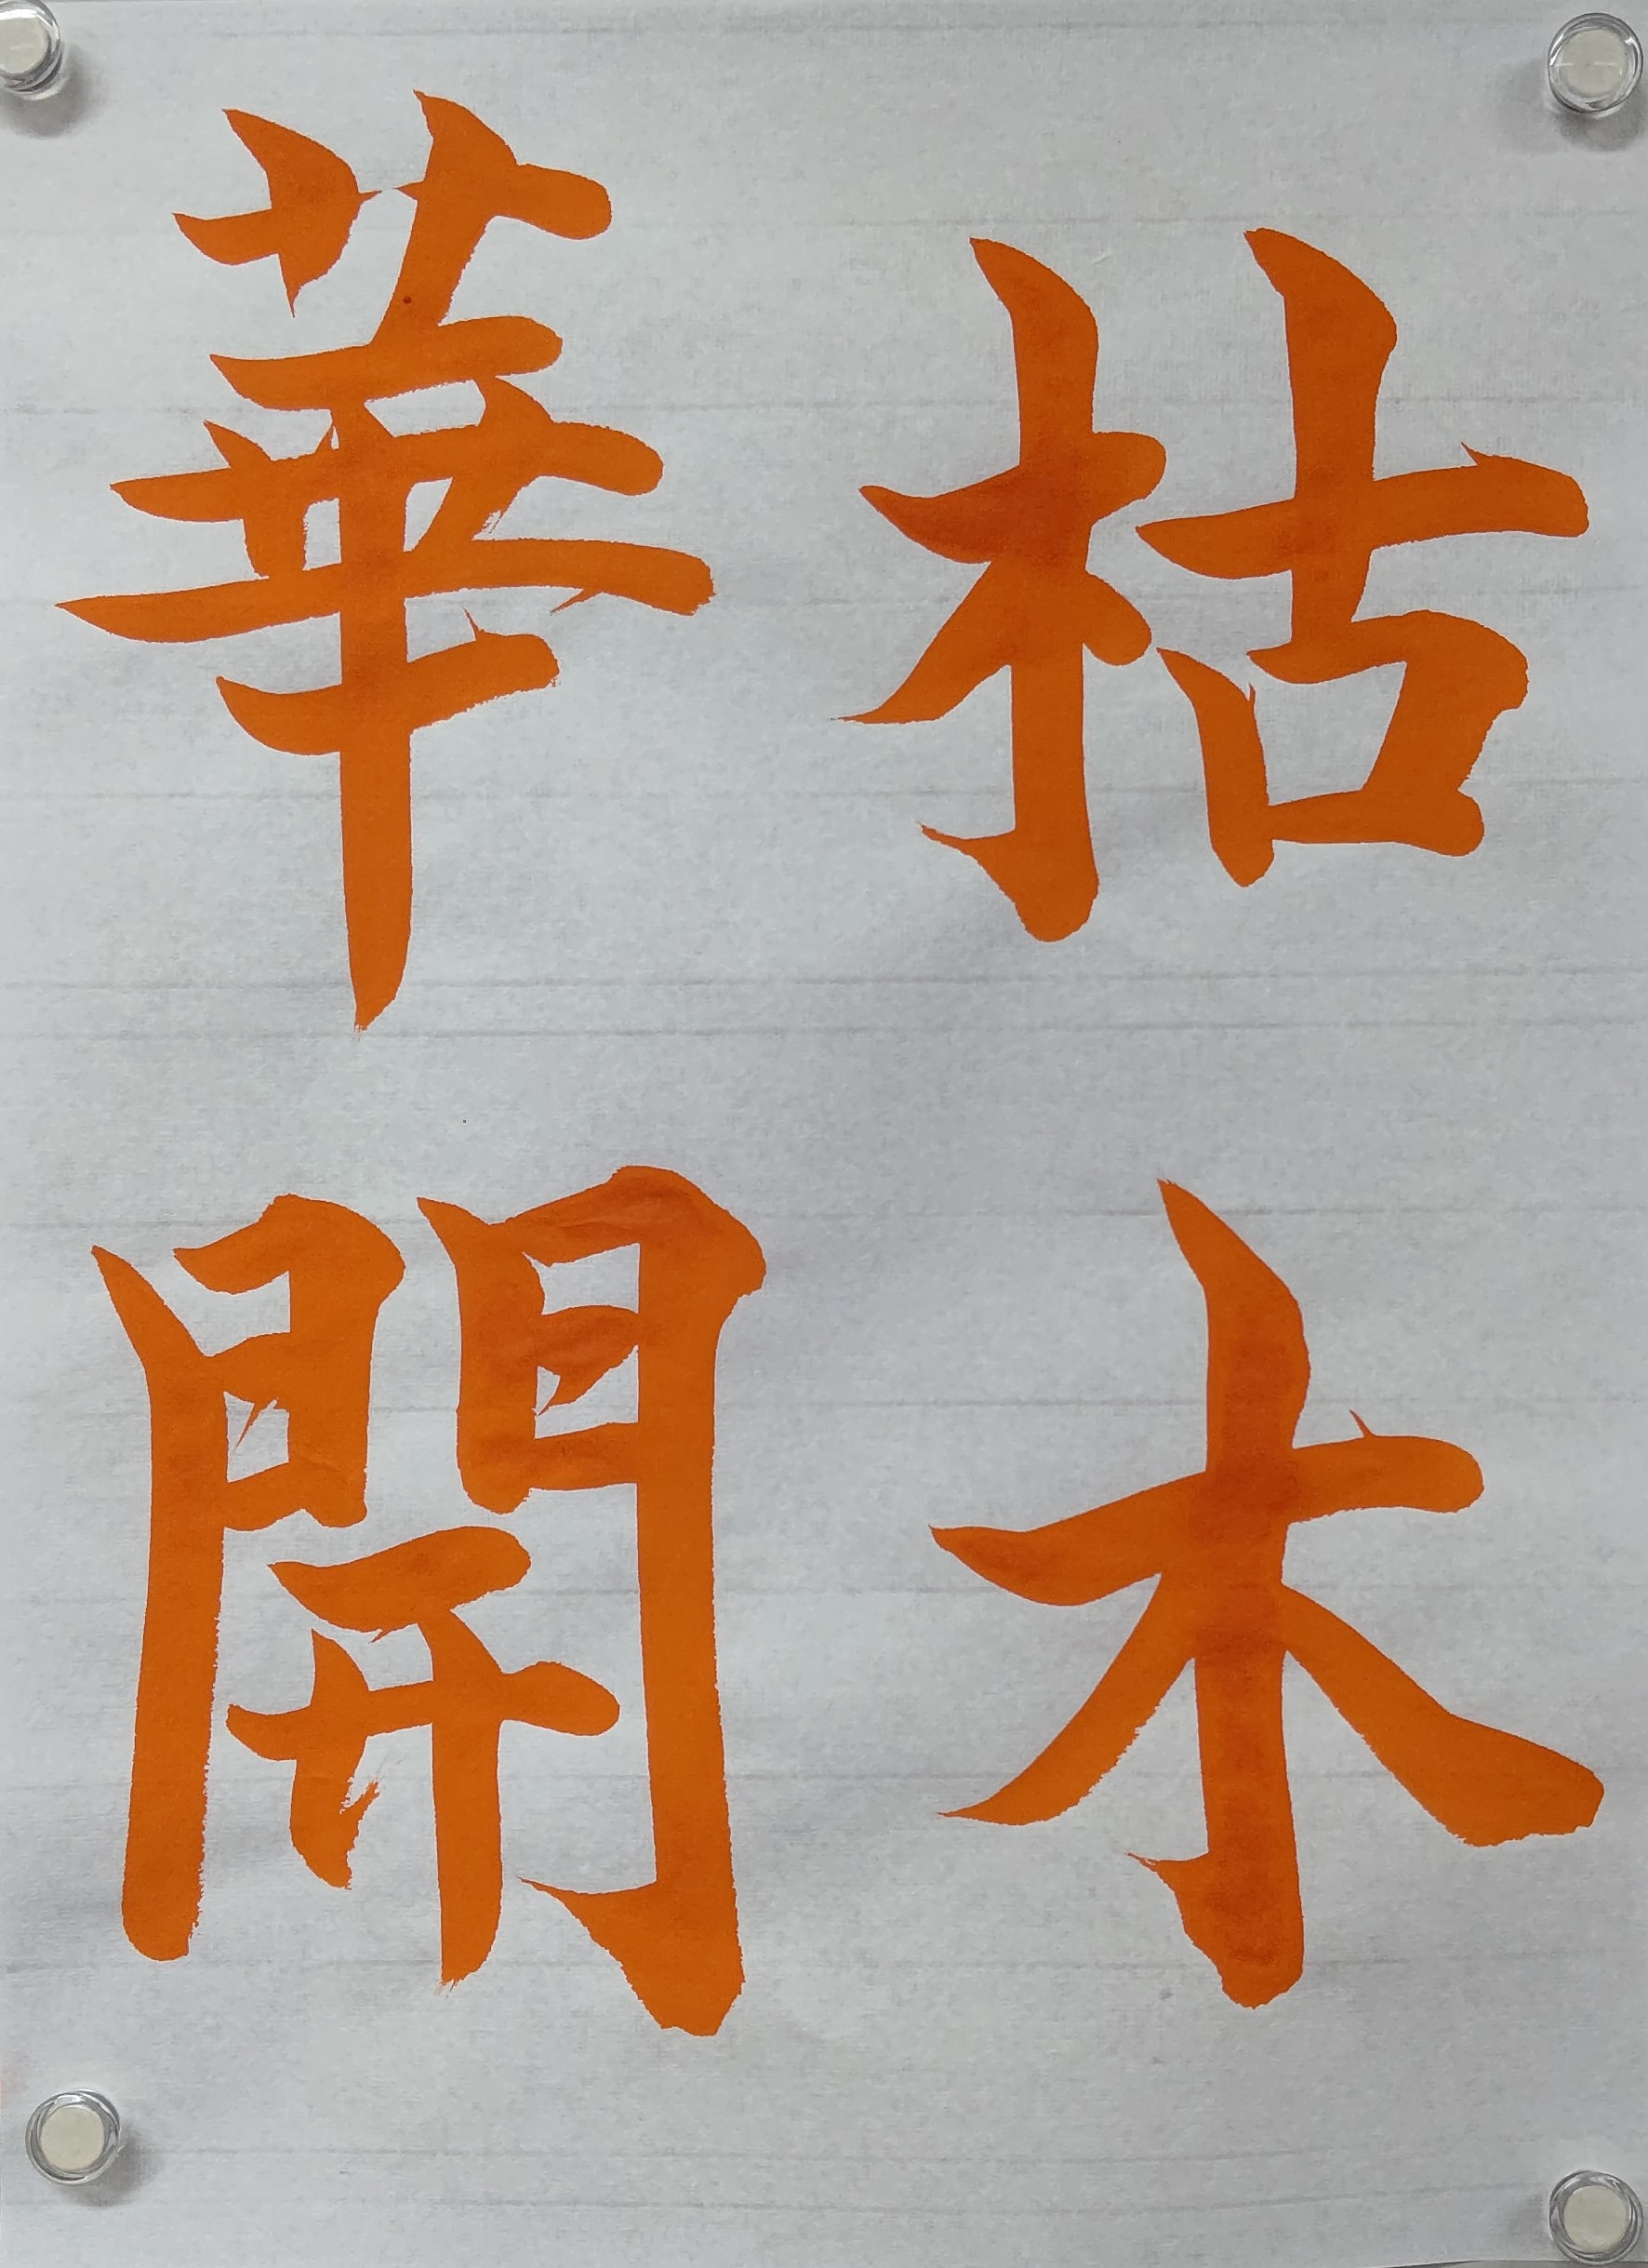 枯木
華開